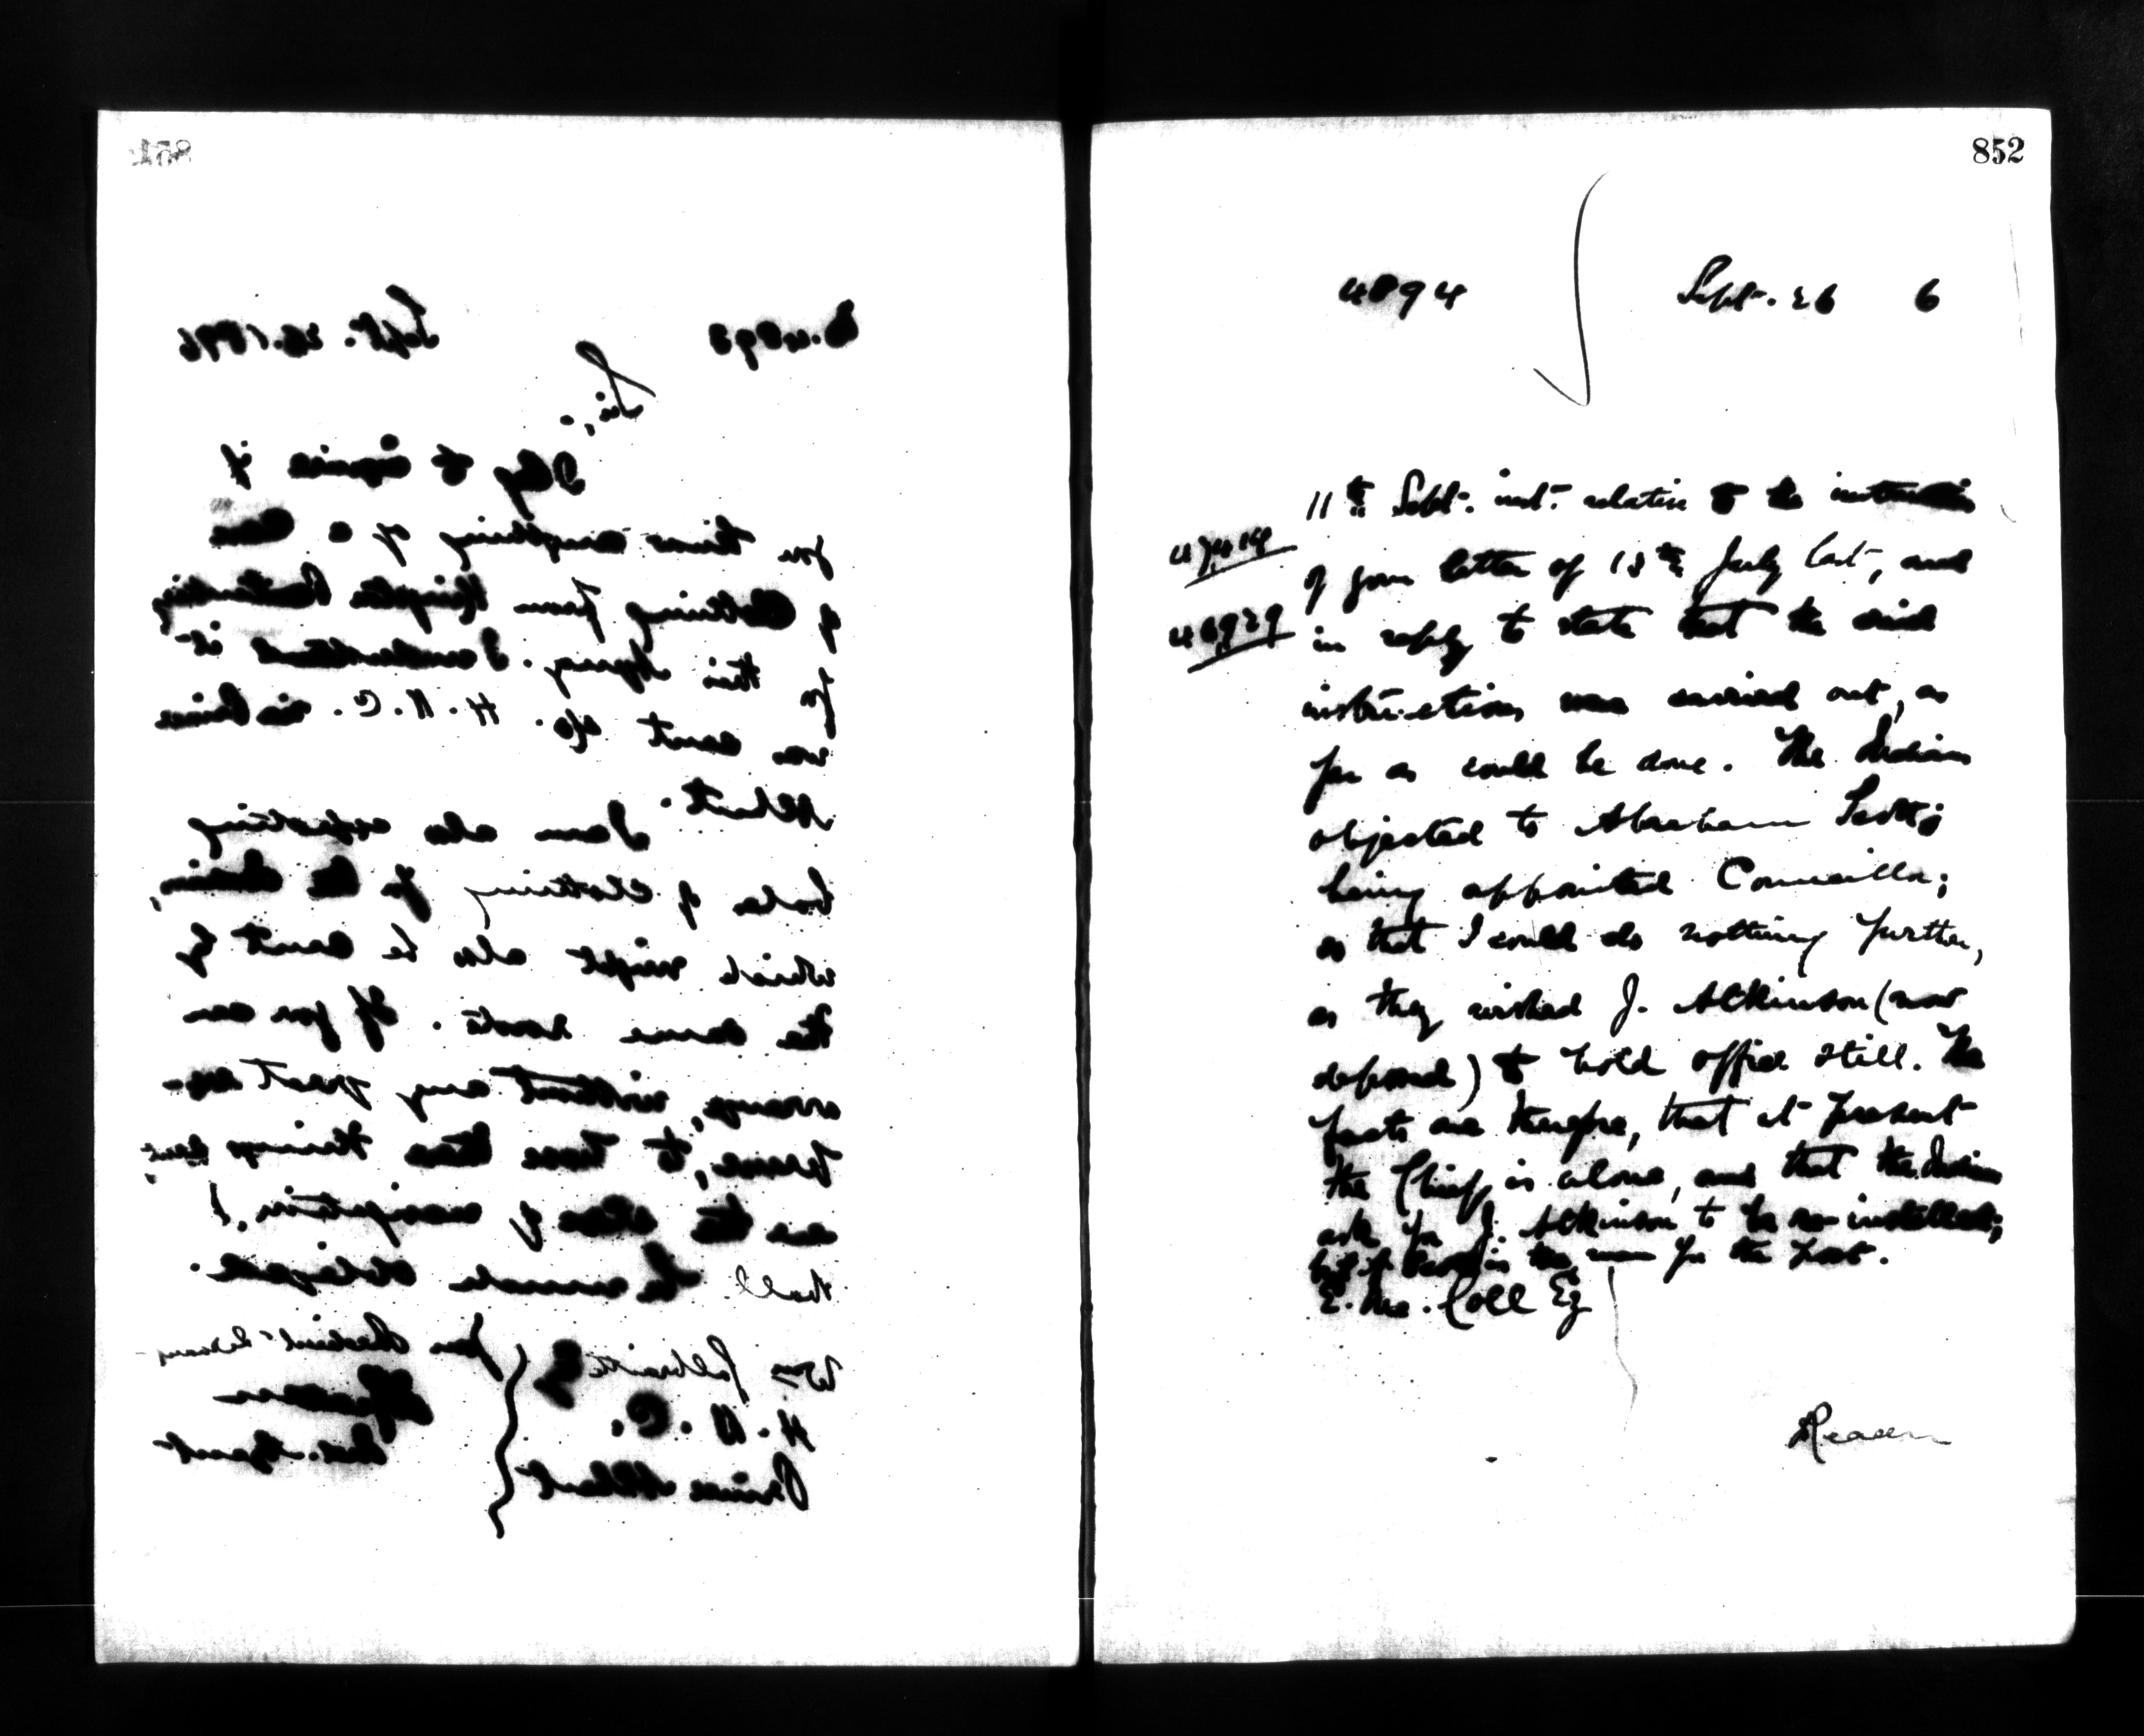 851
B. 4893 Sept. 26. 1896
Sir,
I beg to inquire if
you know anything of a Case
of Clothing from Kingston
for this Agency. I understand it
was sent c/o. H.B.C. in Prince
Albert.
I am also expecting
bales of clothing for the Indians,
which might also be sent by
the same route. If you can
arrange, without any part ex-
pense, to have these things sent,
ere the close of navigation, I
shall be much obliged.
Wm Galbraith Esq
H. B. C.
Prince Albert
Your Obedient Servant
Reader
Ind. Agent
852
4894 Sept. 26 6
11th Sept. inst. relative to the instruction
47,414
of your letter of 18th July last, and
46929
in reply to state that the said
instruction was carried out, as
far as could be done. The Indians
objected to Abraham
being appointed Councillor;
so that I could do nothing further,
as they wished J. Atkinson (now
deposed) to hold office still. The
facts are therefore, that at present
the Chief is alone, and that the Indians
ask for J. Atkinson to be re-installed;
for the post.
E. Mc. Coll Esq
Reader